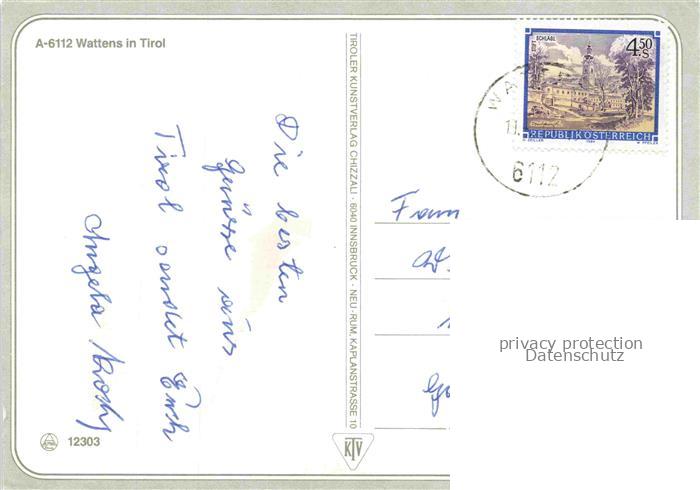 A-6112 Wattens in Tirol
Die besten
Grüsse aus
Tirol sendet Euch
Angela
12303
TIROLER KUNSTVERLAG CHIZZALI · 6040 INNSBRUCK · NEU-RUM, KAPLANSTRASSE 10
KTV
STIFT SCHLÄGL
4.50 S
REPUBLIK ÖSTERREICH
WA
11.
6112
Fam
privacy protection
Datenschutz